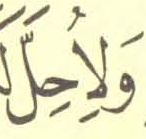 وَلِأُحِلَّ